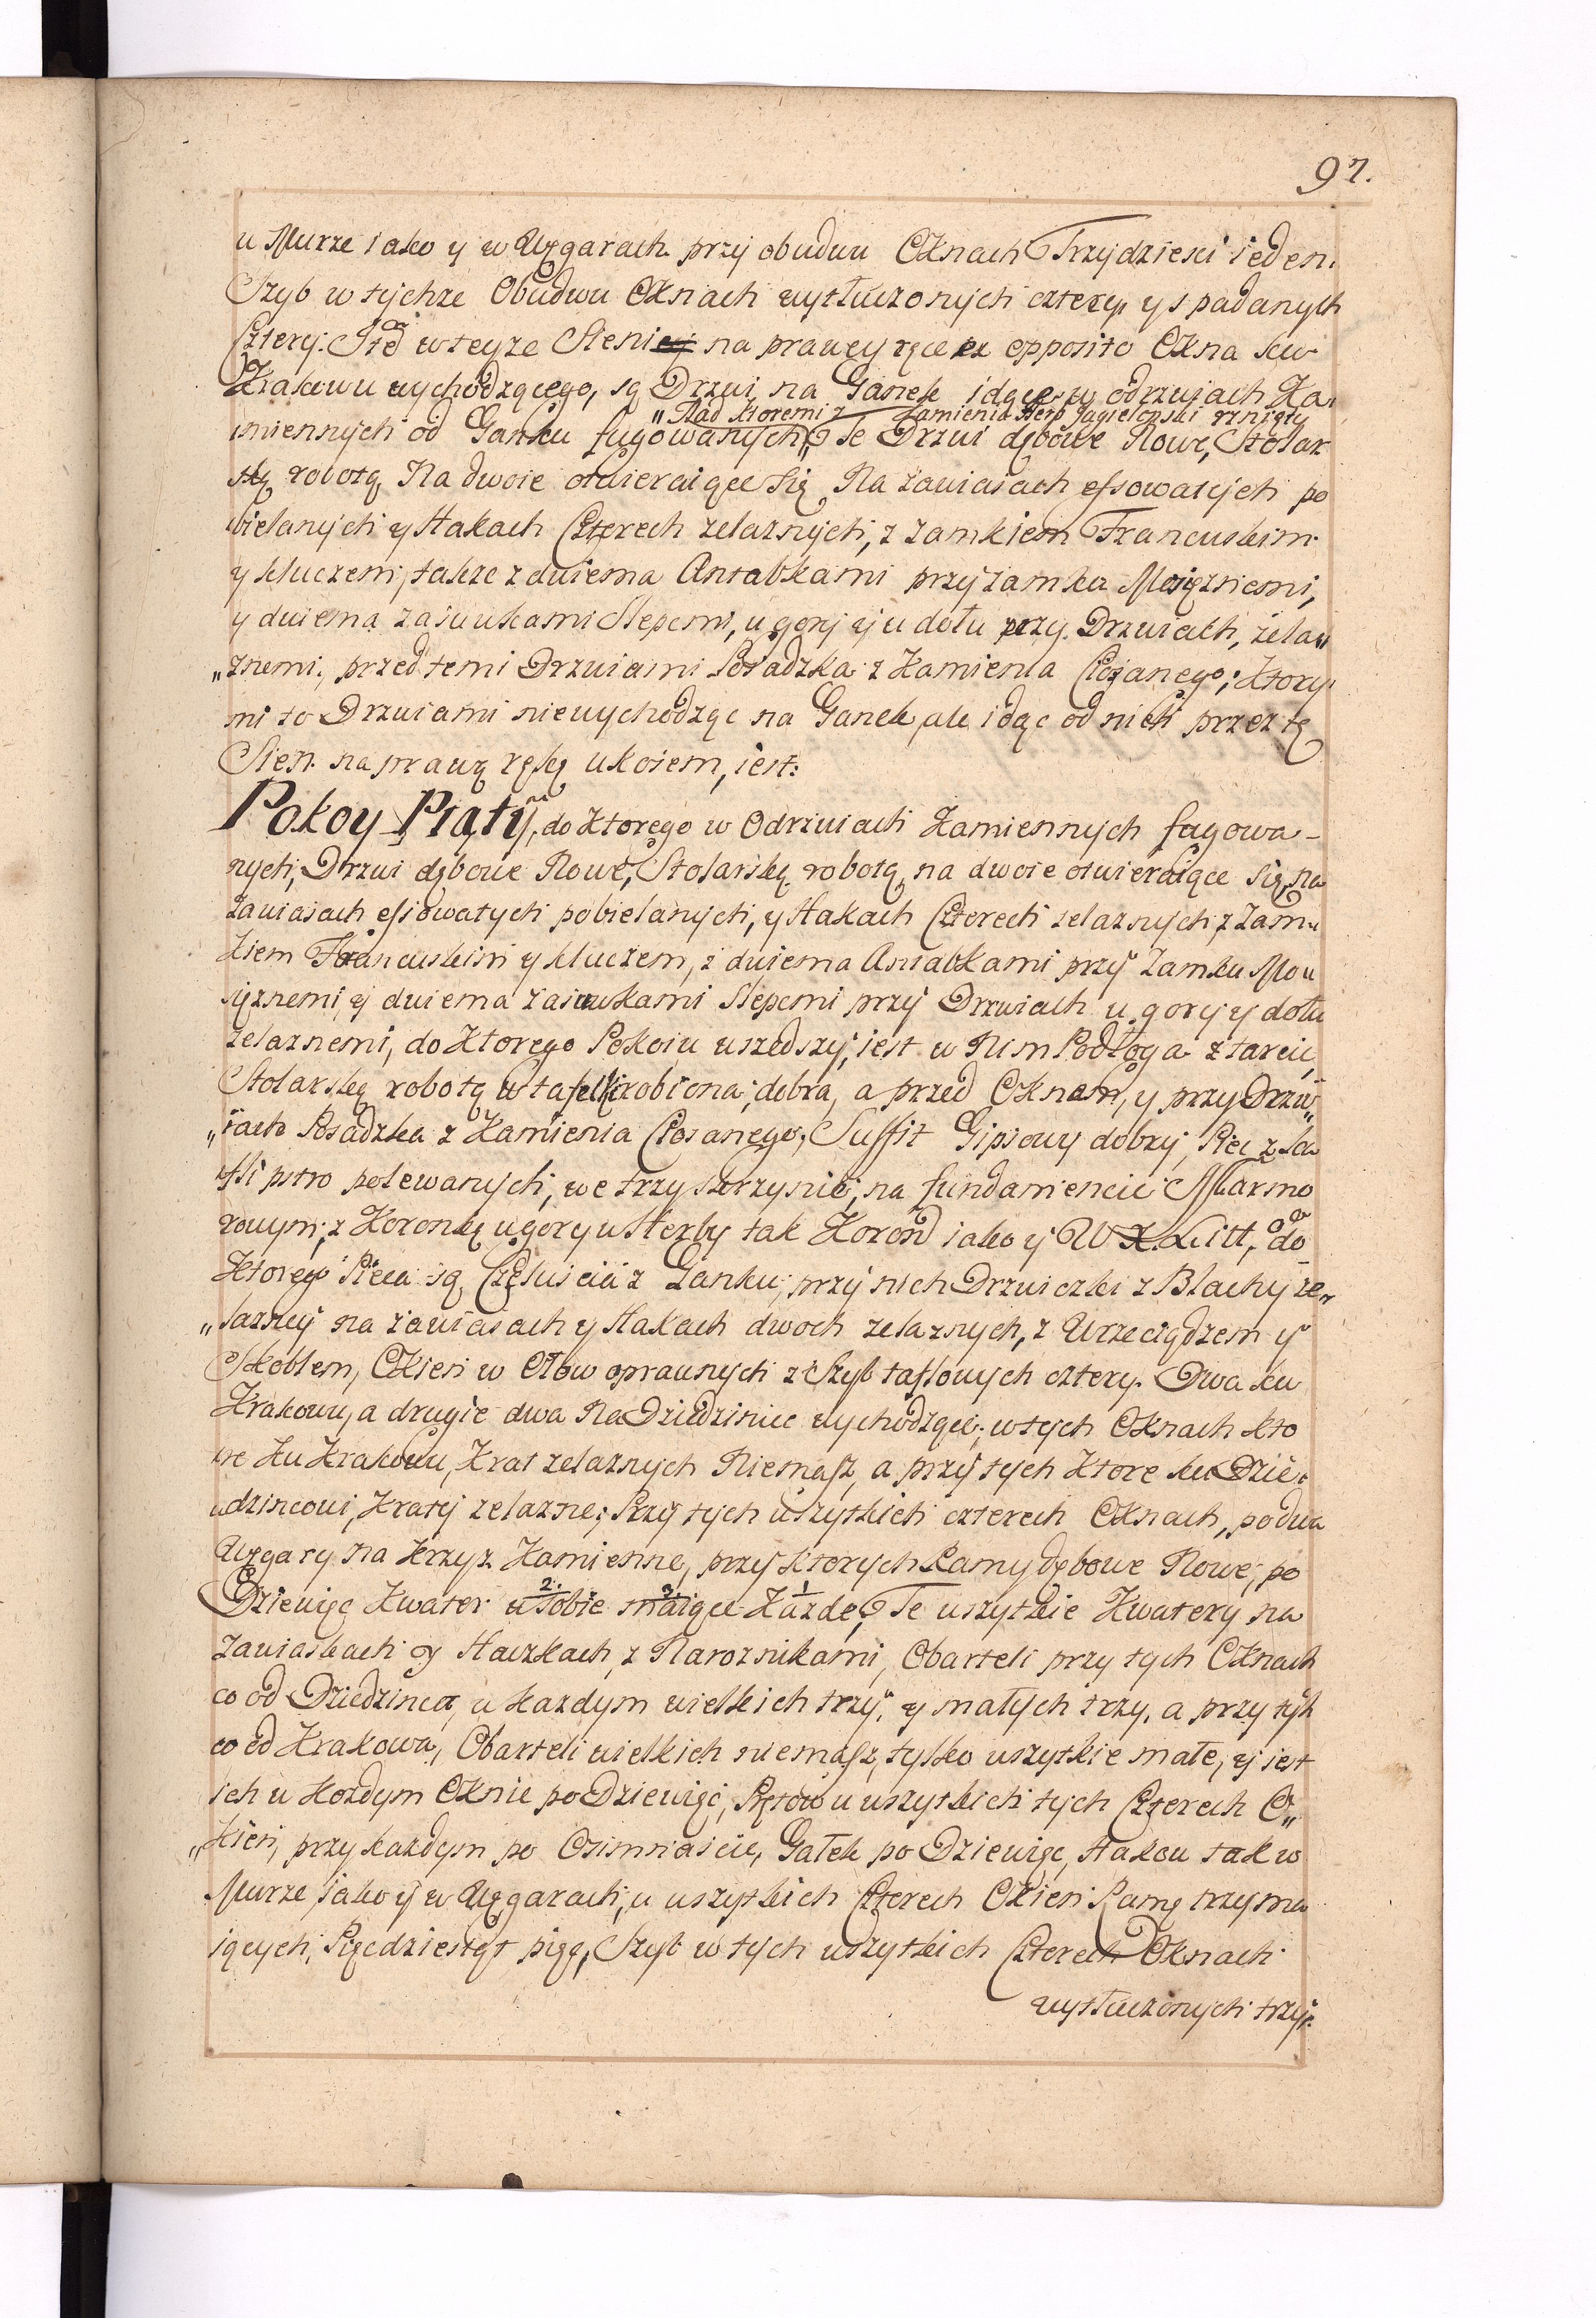 97.
w Murze iako y w Węgarach przy obudwu Oknach Trzydziesci ieden.
Szyb w tychze Obudwu Oknach wytłuczonych cztery, y spadanych
Cztery. Ztąd w teyze Sieni na prawey ręce ex opposito Okna ku
Krakowu wychodzącego, są Drzwi na Ganek idące, w odrzwiach Ka,
„Nad ktoremi z Kamienia Herb Jagielonski rznięty
miennych od Ganku fugowanych,„ Te Drzwi dębowe Nowe, Stolar
ską robotą Na dwoie otwieraiące się, Na zawiasach essowatych po
bielanych y Hakach Czterech zelaznych, z zamkiem Francuskim
y kluczem, takze z dwiema Antabkami przy zamku Mosięznemi,
y dwiema zasuwkami Slepemi, u gory y u dołu przy Drzwiach, zela„
„znemi, przed temi Drzwiami Posadzka z Kamienia Ciosanego; Ktory
mi to Drzwiami niewychodząc na Ganek, ale idąc od nich przez tę
Sien na prawą ręką ukosem, iest:
Pokoy Piąty, do Ktorego w Odrzwiach Kamiennych fugowa-
nych, Drzwi dębowe Nowe, Stolarską robotą, na dwoie otwieraiące się, na
zawiasach essowatych pobielanych, y Hakach Czterech zelaznych, z Zam„
kiem Francuskim y kluczem, z dwiema Antabkami przy Zamku Mo„
sięznemi, y dwiema zasuwkami Slepemi przy Drzwiach u gory y dołu
zelaznemi, do Ktorego Pokoiu wszedszy, iest w Nim Podłoga z tarcic,
Stolarską robotą w tafelki robiona, dobra, a przed Oknem, y przy Drzwi„
„ach Posadzka z Kamienia Ciosanego, Suffit Gipsowy dobry, Piec z Ka
fli pstro polewanych, we trzy skrzynie, na fundamencie Marmo
rowym, z Koronką u gory w Herby tak Koron iako y W. X. Litt, do
Ktorego Pieca są Czeluscia z Ganku, przy nich Drzwiczki z Blachy ze„
„lazney na zawiasach y Hakach dwoch zelaznych, z Wrzeciądzem y
Skoblem, Okien w Ołow oprawnych z Szyb taflowych cztery. Dwa ku
Krakowu, a drugie dwa Na Dziedziniec wychodzące, w tych Oknach kto
re Ku Krakowu, Krat zelaznych Niemasz, a przy tych Ktore ku Dzie„
„dzincowi, Kraty zelazne; Przy tych wszytkich czterech Oknach, po dwa
Węgary na Krzyz Kamienne, przy ktorych Ramy dębowe Nowe, po
Dziewięć Kwater 2. w sobie 3. maiące 1 Kazde, Te wszytkie Kwatery na
Zawiaskach y Haczkach, z Naroznikami, Obarteli przy tych Oknach
co od Dziedzinca, u kazdym wielkich trzy, y małych trzy, a przy tych
co od Krakowa, Obarteli wielkich niemasz, tylko wszytkie małe, y iest
ich u Kozdym Oknie po Dziewięć, Prętow u wszytkich tych Czterech O„
„kien, przy kazdym po Osimnascie, Gałek po Dziewięc, Hakow tak w
Murze iako y w Węgarach, u wszytkich Czterech Okien Ramę trzyma
iących, Pięcdziesiąt pięc, Szyb w tych wszytkich Czterech Oknach
wytłuczonych trzy.